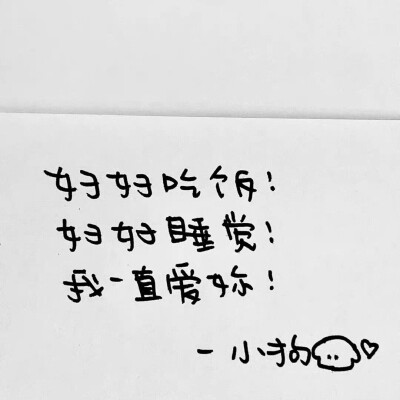 好好吃饭！
好好睡觉！
我一直爱妳！
－小狗